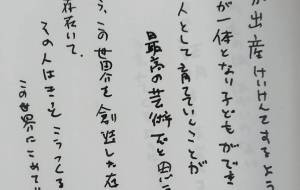 が出産けいけんするよう
が一体となり子どもができ
人として育てていくことが
最高の芸術だと思
う、この世界を創造した在
存在いて、
その人はきっとこうつくる
この世界にこめて